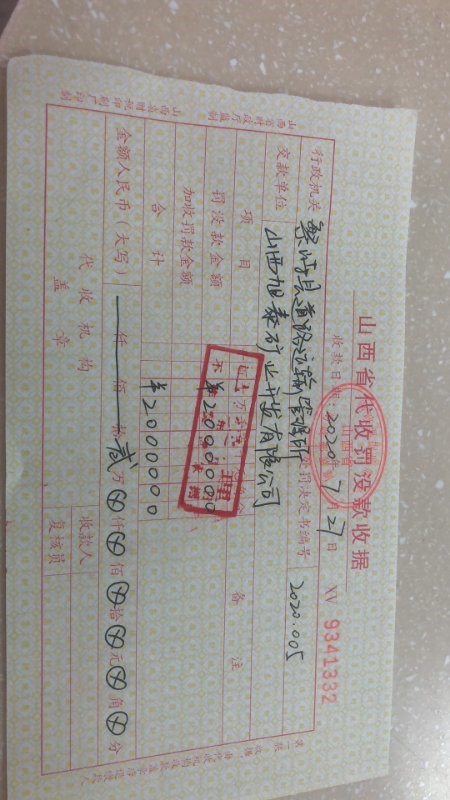 山西省代收罚没款收据
收款日期 2020年7月27日 XV 9341332
行政机关 繁峙县道路运输管理所 处罚决定书编号 2020.005
交款单位 山西旭泰矿业开发有限公司
项目 备注
罚没款金额 ¥2000000
加收罚款金额
合计 ¥2000000
金额人民币(大写) 仟 佰 拾 贰 万 ⊗ 仟 ⊗ 佰 ⊗ 拾 ⊗ 元 ⊗ 角 ⊗ 分
代收机构 收款人
盖章 复核员
山西省财政厅监制